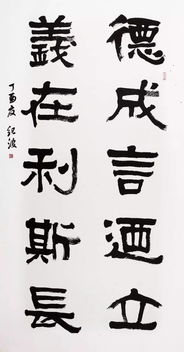 德成言迺立
義在利斯長
丁酉夏 紀波